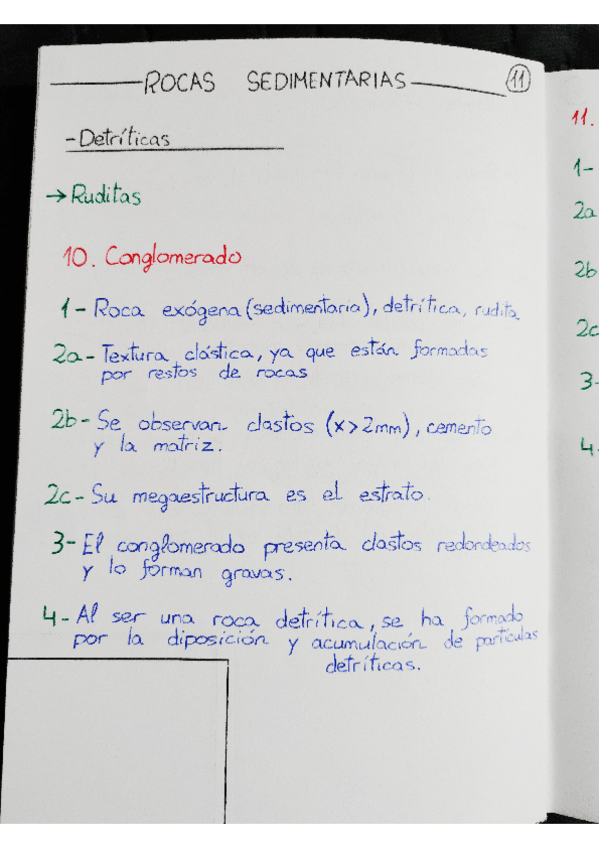 ROCAS SEDIMENTARIAS 11
- Detríticas
→ Ruditas
10. Conglomerado
1- Roca exógena (sedimentaria), detrítica, rudita.
2a- Textura clástica, ya que están formadas
por restos de rocas
2b- Se observan clastos (x>2mm), cemento
y la matriz.
2c- Su megaestructura es el estrato.
3- El conglomerado presenta clastos redondeados
y lo forman gravas.
4- Al ser una roca detrítica, se ha formado
por la diposición y acumulación de partículas
detríticas.
11.
1-
2a
2b
2c
3-
4-